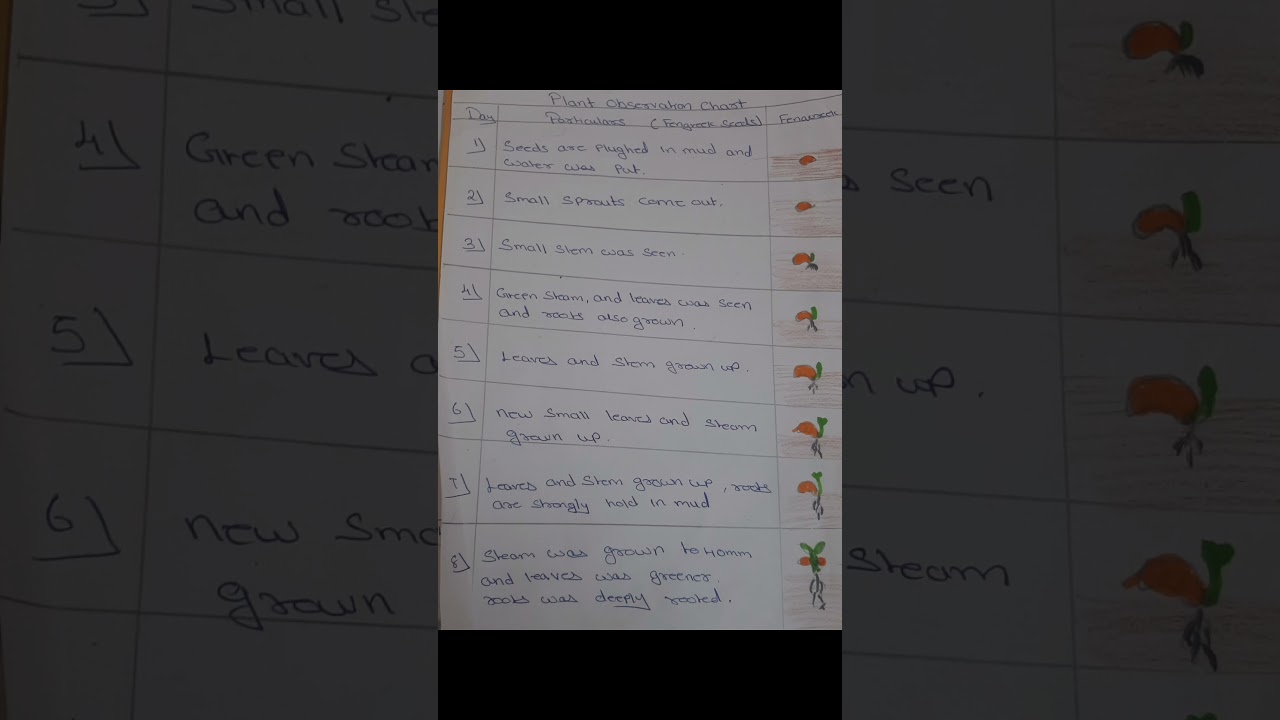 Plant Observation Chart
Day Particulars (Fengreek Seeds)
1) Seeds are plughed in mud and
water was put.
2) Small sprouts come out.
3) Small stem was seen.
4) Green steam, and leaves was seen
and roots also grown.
5) Leaves and stem grown up.
6) new small leaves and steam
grown up.
7) Leaves and stem grown up, roots
are strongly hold in mud
8) Steam was grown to 40mm
and leaves was greener.
roots was deeply rooted.